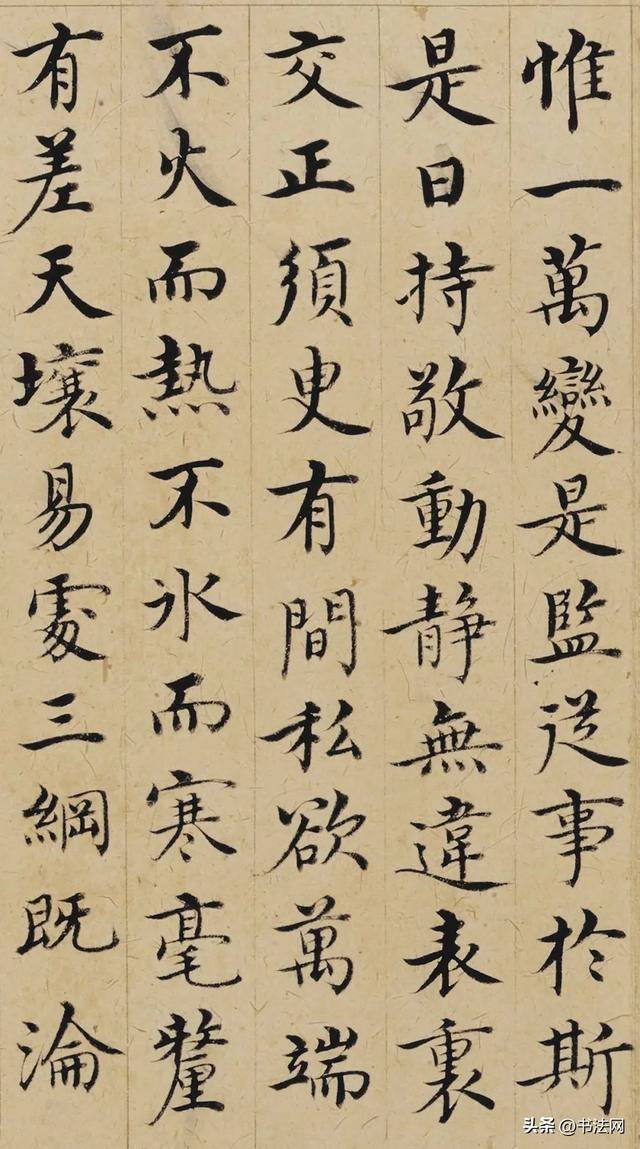 惟一萬變是監從事於斯
是曰持敬動靜無違表裏
交正須臾有間私欲萬端
不火而熱不氷而寒毫釐
有差天壤易處三綱既淪
头条 @书法网